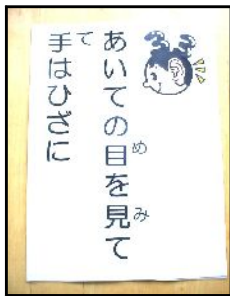 あいての目を見て
手はひざに